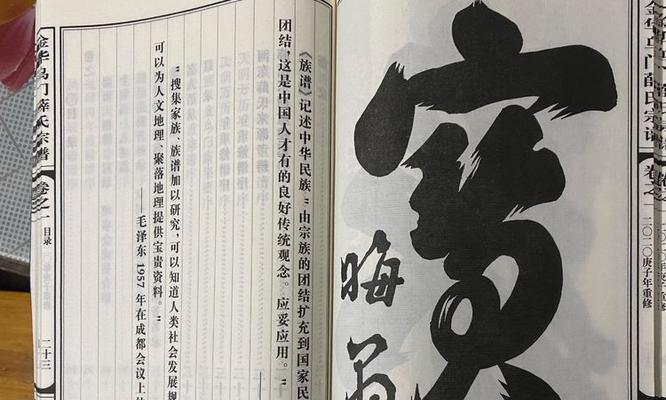 金华乌门薛氏宗谱 卷之一 二〇二〇庚子年重修
晦
《族谱》记述中华民族"由宗族的团结扩充到国家民
团结，这是中国人才有的良好传统观念。应妥应用。"
"搜集家族、族谱加以研究，可以知道人类社会发展规
可以为人文地理、聚落地理提供宝贵资料。"
——毛泽东 1957 年在成都会议上
金华乌门薛氏宗谱 卷之一 目录 二十三